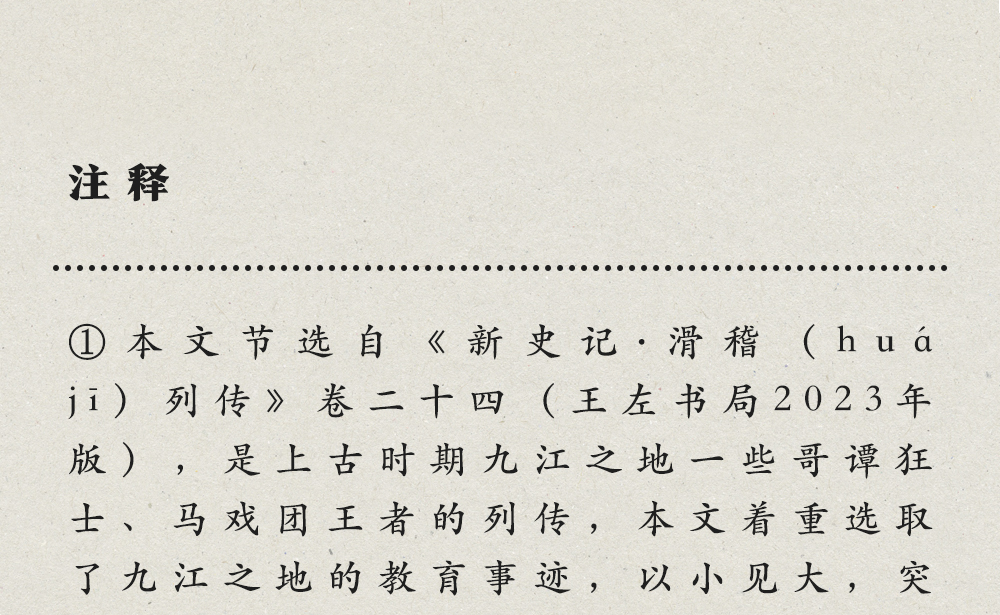 注释
①本文节选自《新史记·滑稽（huá
jī）列传》卷二十四（王左书局2023年
版），是上古时期九江之地一些哥谭狂
士、马戏团王者的列传，本文着重选取
了九江之地的教育事迹，以小见大，突